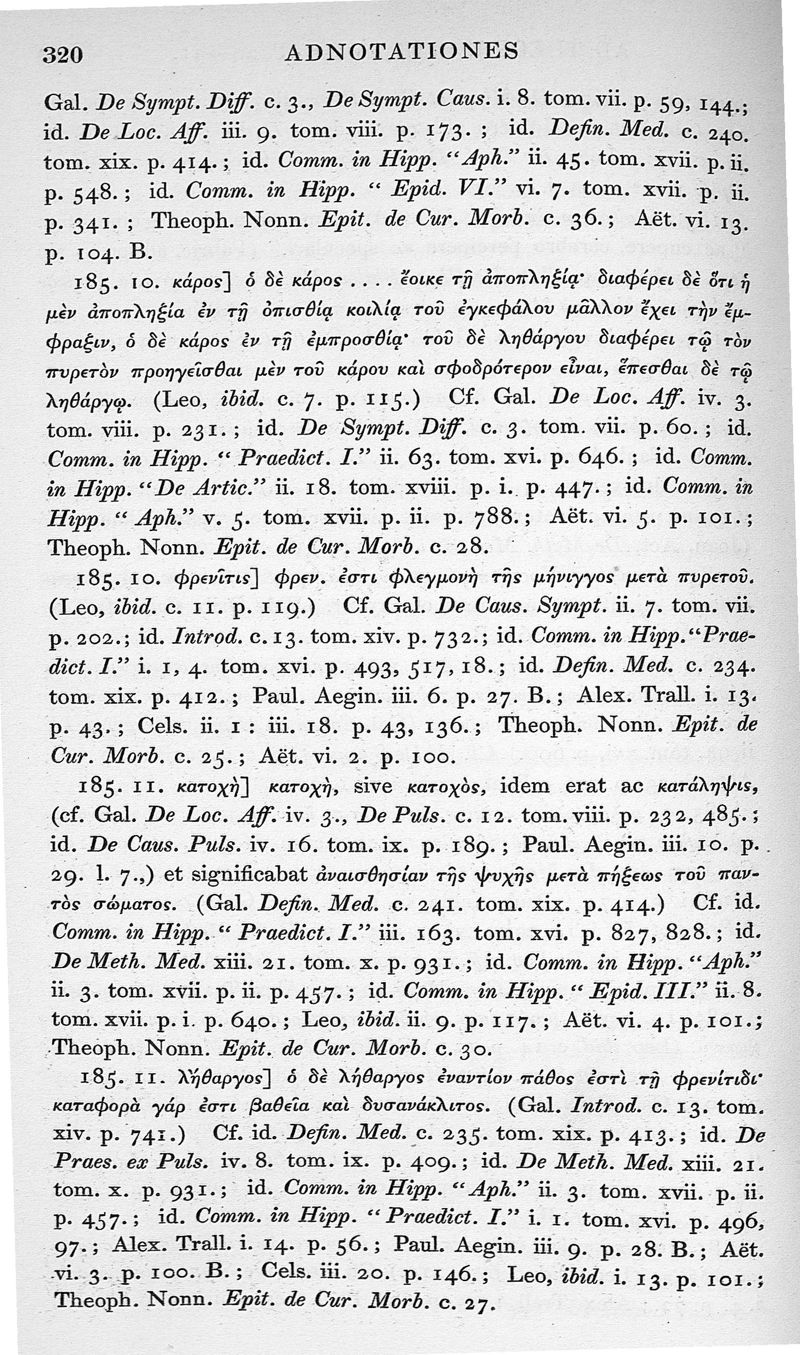 320 ADNOTATIONES
Gal. De Sympt. Diff. c. 3., De Sympt. Caus. i. 8. tom. vii. p. 59, 144.;
id. De Loc. Aff. iii. 9. tom. viii. p. 173. ; id. Defin. Med. c. 240.
tom. xix. p. 414. ; id. Comm. in Hipp. “Aph.” ii. 45. tom. xvii. p. ii.
p. 548. ; id. Comm. in Hipp. “ Epid. VI.” vi. 7. tom. xvii. p. ii.
p. 341. ; Theoph. Nonn. Epit. de Cur. Morb. c. 36. ; Aët. vi. 13.
p. 104. B.
185. 10. κάρος] ὁ δὲ κάρος . . . . ἔοικε τῇ ἀποπληξίᾳ· διαφέρει δὲ ὅτι ἡ
μὲν ἀποπληξία ἐν τῇ ὀπισθίᾳ κοιλίᾳ τοῦ ἐγκεφάλου μᾶλλον ἔχει τὴν ἔμ-
φραξιν, ὁ δὲ κάρος ἐν τῇ ἐμπροσθίᾳ· τοῦ δὲ ληθάργου διαφέρει τῷ τὸν
πυρετὸν προηγεῖσθαι μὲν τοῦ κάρου καὶ σφοδρότερον εἶναι, ἕπεσθαι δὲ τῷ
ληθάργῳ. (Leo, ibid. c. 7. p. 115.) Cf. Gal. De Loc. Aff. iv. 3.
tom. viii. p. 231. ; id. De Sympt. Diff. c. 3. tom. vii. p. 60. ; id.
Comm. in Hipp. “ Praedict. I.” ii. 63. tom. xvi. p. 646. ; id. Comm.
in Hipp. “De Artic.” ii. 18. tom. xviii. p. i. p. 447. ; id. Comm. in
Hipp. “ Aph.” v. 5. tom. xvii. p. ii. p. 788. ; Aët. vi. 5. p. 101. ;
Theoph. Nonn. Epit. de Cur. Morb. c. 28.
185. 10. φρενῖτις] φρεν. ἐστι φλεγμονὴ τῆς μήνιγγος μετὰ πυρετοῦ.
(Leo, ibid. c. 11. p. 119.) Cf. Gal. De Caus. Sympt. ii. 7. tom. vii.
p. 202.; id. Introd. c. 13. tom. xiv. p. 732.; id. Comm. in Hipp. “Prae-
dict. I.” i. 1, 4. tom. xvi. p. 493, 517, 18. ; id. Defin. Med. c. 234.
tom. xix. p. 412. ; Paul. Aegin. iii. 6. p. 27. B. ; Alex. Trall. i. 13.
p. 43. ; Cels. ii. 1 : iii. 18. p. 43, 136. ; Theoph. Nonn. Epit. de
Cur. Morb. c. 25. ; Aët. vi. 2. p. 100.
185. 11. κατοχὴ] κατοχὴ, sive κατοχὸς, idem erat ac κατάληψις,
(cf. Gal. De Loc. Aff. iv. 3., De Puls. c. 12. tom. viii. p. 232, 485. ;
id. De Caus. Puls. iv. 16. tom. ix. p. 189. ; Paul. Aegin. iii. 10. p.
29. l. 7.,) et significabat ἀναισθησίαν τῆς ψυχῆς μετὰ πήξεως τοῦ παν-
τὸς σώματος. (Gal. Defin. Med. c. 241. tom. xix. p. 414.) Cf. id.
Comm. in Hipp. “ Praedict. I.” iii. 163. tom. xvi. p. 827, 828. ; id.
De Meth. Med. xiii. 21. tom. x. p. 931. ; id. Comm. in Hipp. “Aph.”
ii. 3. tom. xvii. p. ii. p. 457. ; id. Comm. in Hipp. “ Epid. III.” ii. 8.
tom. xvii. p. i. p. 640. ; Leo, ibid. ii. 9. p. 117. ; Aët. vi. 4. p. 101. ;
Theoph. Nonn. Epit. de Cur. Morb. c. 30.
185. 11. λήθαργος] ὁ δὲ λήθαργος ἐναντίον πάθος ἐστὶ τῇ φρενίτιδι·
καταφορὰ γάρ ἐστι βαθεῖα καὶ δυσανάκλιτος. (Gal. Introd. c. 13. tom.
xiv. p. 741.) Cf. id. Defin. Med. c. 235. tom. xix. p. 413. ; id. De
Praes. ex Puls. iv. 8. tom. ix. p. 409. ; id. De Meth. Med. xiii. 21.
tom. x. p. 931. ; id. Comm. in Hipp. “Aph.” ii. 3. tom. xvii. p. ii.
p. 457. ; id. Comm. in Hipp. “ Praedict. I.” i. 1. tom. xvi. p. 496,
97. ; Alex. Trall. i. 14. p. 56. ; Paul. Aegin. iii. 9. p. 28. B. ; Aët.
vi. 3. p. 100. B. ; Cels. iii. 20. p. 146. ; Leo, ibid. i. 13. p. 101. ;
Theoph. Nonn. Epit. de Cur. Morb. c. 27.